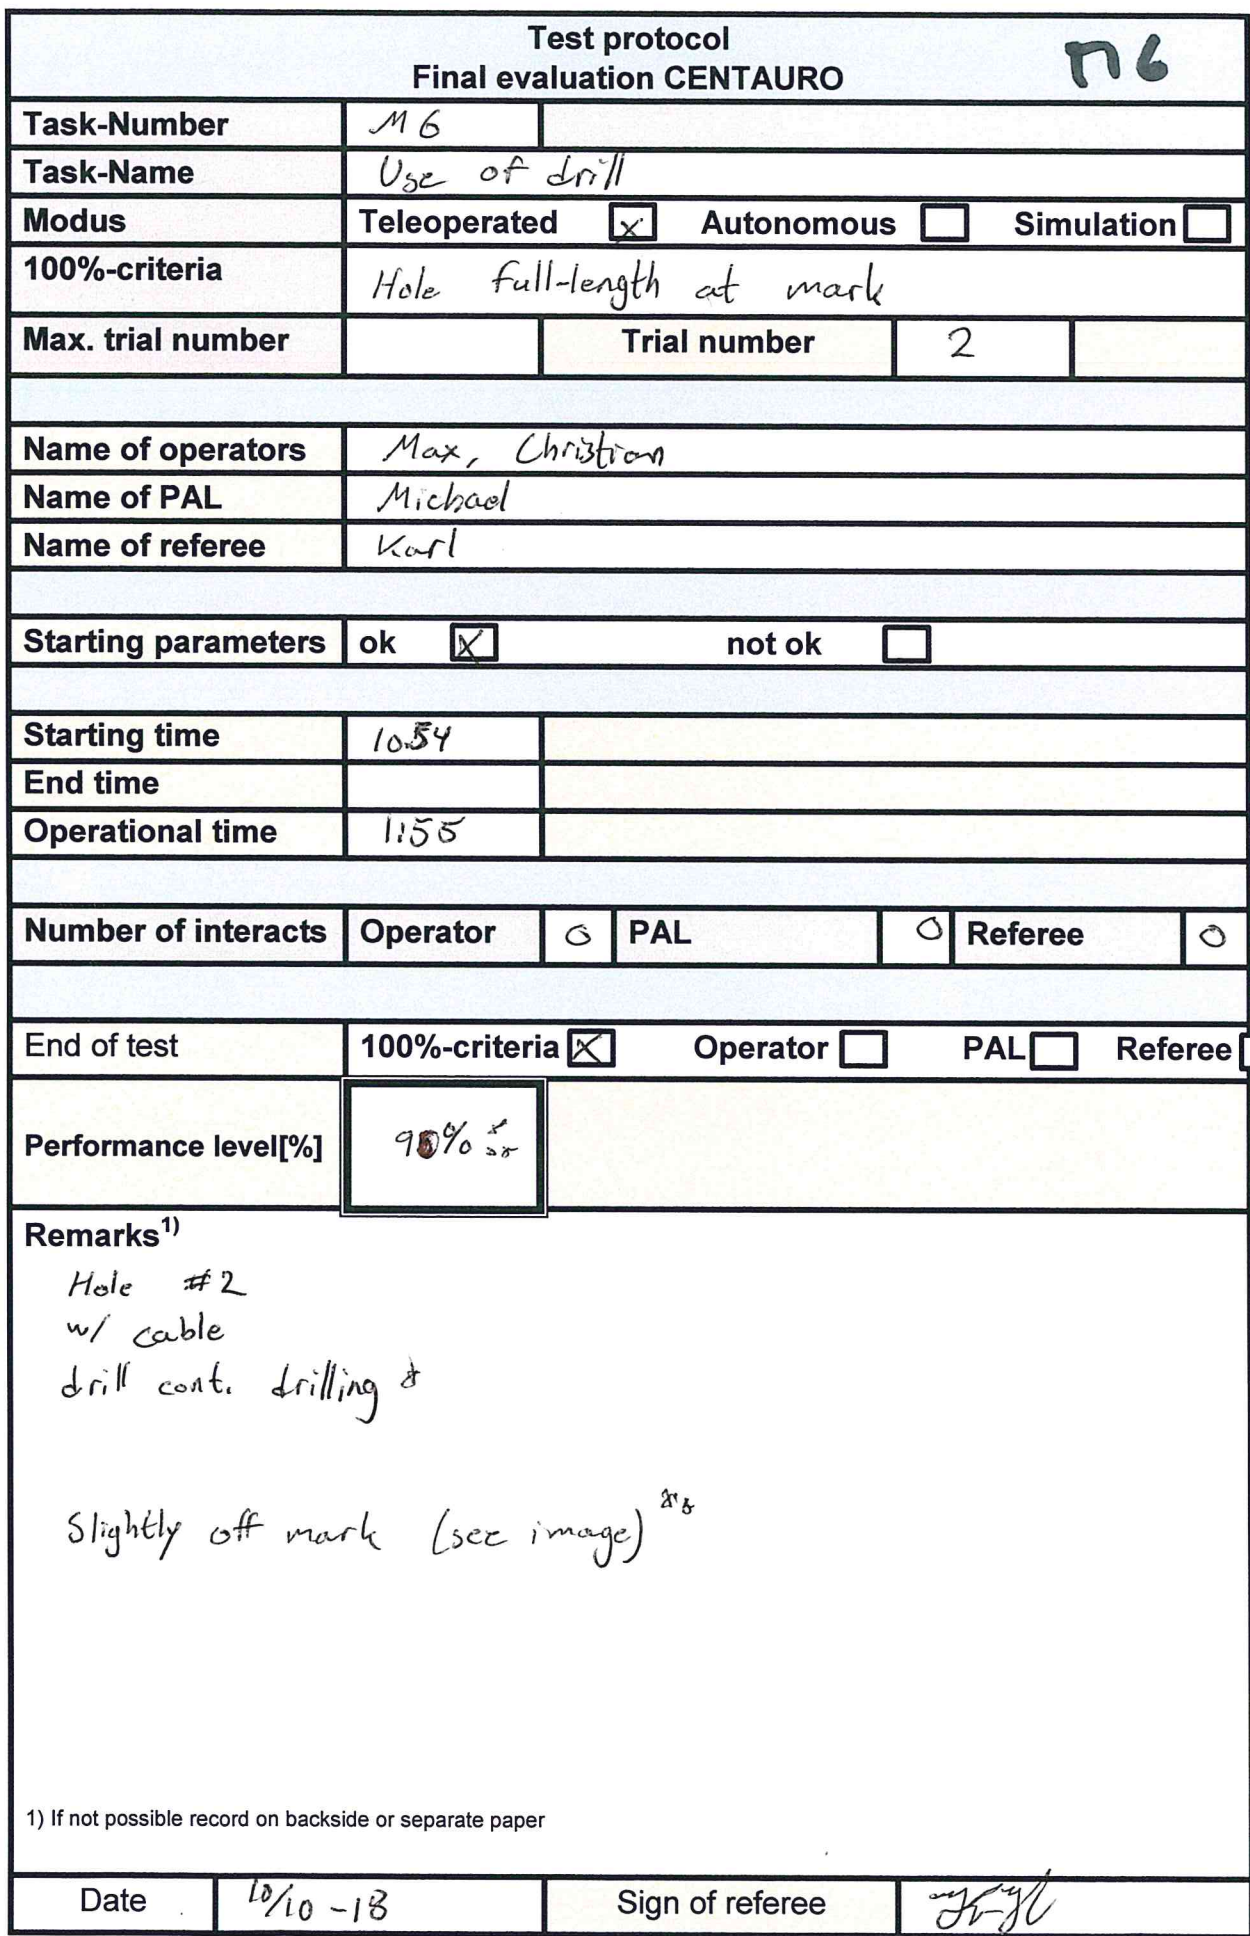 Test protocol
Final evaluation CENTAURO
M6
Task-Number M6
Task-Name Use of drill
Modus Teleoperated x Autonomous Simulation
100%-criteria Hole full-length at mark
Max. trial number Trial number 2
Name of operators Max, Christian
Name of PAL Michael
Name of referee Karl
Starting parameters ok x not ok
Starting time 10.54
End time
Operational time 1:55
Number of interacts Operator 0 PAL 0 Referee 0
End of test 100%-criteria x Operator PAL Referee
Performance level[%] % * **
Remarks1)
Hole #2
w/ cable
drill cont. drilling *
Slightly off mark (see image) **
1) If not possible record on backside or separate paper
Date 10/10-18 Sign of referee